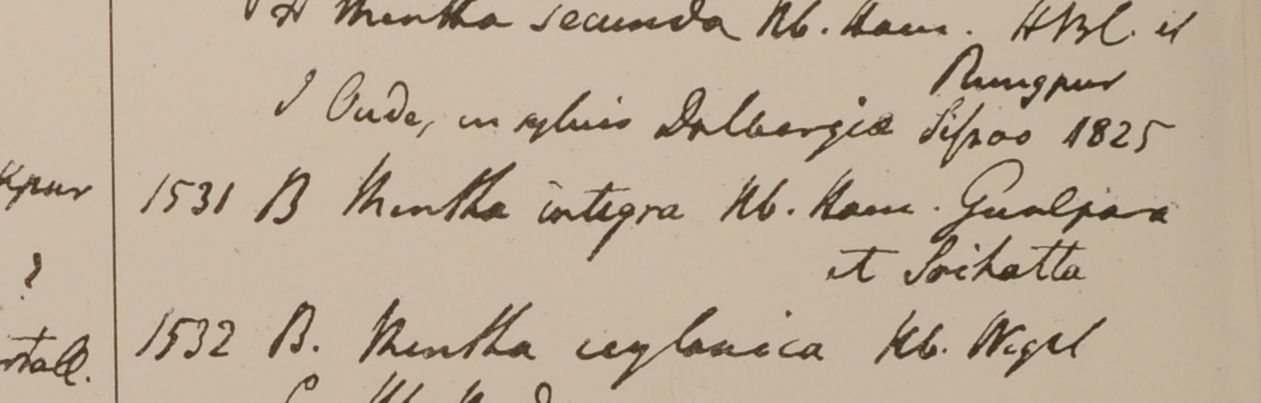 H Mentha secunda Hb. Ham. HBC. et
Rungpur
I Oude, in sylvis Dalbergiæ Sissoo 1825
kpur 1531 B Mentha integra Hb. Ham. Gualpara
et Srihatta
?
1532 B. Mentha ceylanica Hb. Wight